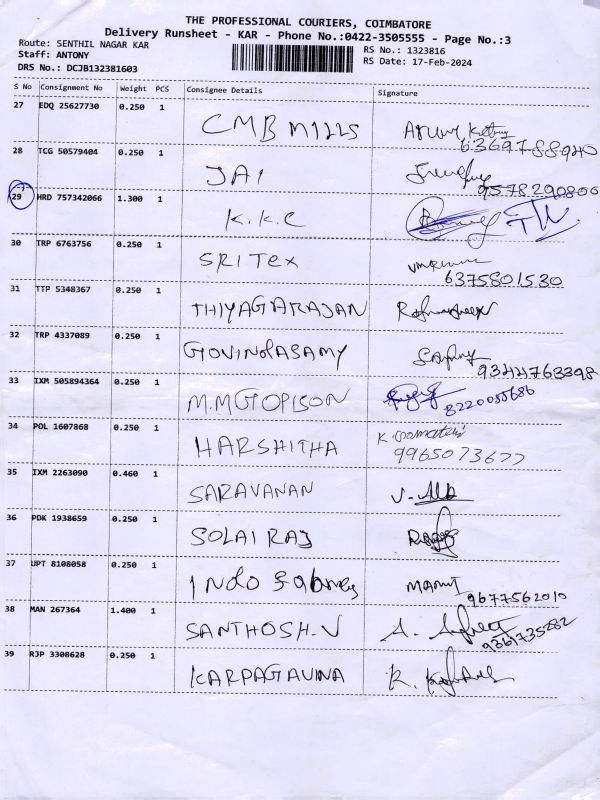 THE PROFESSIONAL COURIERS, COIMBATORE
Delivery Runsheet - KAR - Phone No.:0422-3505555 - Page No.:3
Route: SENTHIL NAGAR KAR
Staff: ANTONY
DRS No.: DCJB132381603
RS No.: 1323816
RS Date: 17-Feb-2024
S No Consignment No Weight PCS Consignee Details Signature
27 EDQ 25627730 0.250 1 CMB MILLS
63697 88940
28 TCG 50579404 0.250 1 JAI
9578290800
29 HRD 757342066 1.300 1 K.K.C
30 TRP 6763756 0.250 1 SRI TEX
6375801530
31 TTP 5348367 0.250 1 THIYAGARAJAN
32 TRP 4337089 0.250 1 GOVINDASAMY
9344763398
33 IXM 505894364 0.250 1 M.M GOPISON
8220055686
34 POL 1607868 0.250 1 HARSHITHA
9965073677
35 IXM 2263090 0.460 1 SARAVANAN
36 PDK 1938659 0.250 1 SOLAI RAJ
37 UPT 8108058 0.250 1 INDO
9677562010
38 MAN 267364 1.400 1 SANTHOSH.V
9361735282
39 RJP 3308628 0.250 1 KARPAGAVINA